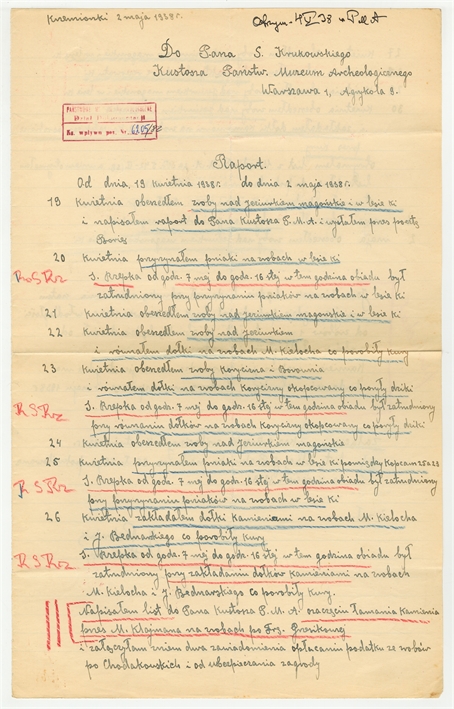 Krzemionki 2 maja 1938r.
Otrzym. 4 V 38 w PMA
Do Pana S. Krukowskiego
Kustosza Państw. Muzeum Archeologicznego
Warszawa 1, Agrykola 9.
Ks. wpływu poz. Nr.
Raport.
Od dnia 19 Kwietnia 1938r. do dnia 2 maja 1938r.
19 Kwietnia obeszedłem zroby nad Jeziurkiem magońskie i w lesie Ki
i napisałem raport do Pana Kustosza P.M.A. i wysłałem pres pocztę
20 Kwietnia przyrzynałem pniaki na zrobach w lesie Ki
R S Rz J. Rzepka od godz. 7 mej do godz. 16 stej w tem godzina obiadu był
zatrudniony przy przyrzynaniu pniaków na zrobach w lesie Ki
21 Kwietnia obeszedłem zroby nad Jeziurkiem magonskie i w lesie Ki
22 Kwietnia obeszedłem zroby nad Jeziurkiem
i równałem dołki na zrobach M. Kielocha co porobiły Kury
23 Kwietnia obeszedłem zroby Korycizna i Borownia
i równałem dołki na zrobach Korycizny okopcowany co poryły dziki
R S Rz J. Rzepka od godz. 7 mej do godz. 16 stej w tem godzina obiadu był zatrudniony
przy równaniu dołków na zrobach Korycizny okopcowany co poryły dziki
24 Kwietnia obeszedłem zroby nad Jeziurkiem magonskie
25 Kwietnia przyrzynałem pniaki na zrobach w lesie Ki pomiędzy Kopcam 25 a 23
R S Rz J. Rzepka od godz 7 mej do godz. 16 stej w tem godzina obiadu był zatrudniony
przy przyrzynaniu pniaków na zrobach w lesie Ki
26 Kwietnia zakładałem dołki Kamieniami na zrobach M. Kielocha
i J. Bednarskiego co porobiły Kury
R S Rz J. Rzepka od godz. 7 mej do godz. 16 stej w tem godzina obiadu był
zatrudniony przy zakładaniu dołków Kamieniami na zrobach
M. Kielocha i J. Bednarskiego co porobiły Kury.
Napisałem list do Pana Kustosza P.M.A. łamania Kamienia
pres M. Klajmana na zrobach po Frz.
i załączyłam dwa zawiadomienia opłacaniu podatku ze zrobów
po Chodakowskich i od ubezpieczania zagrody